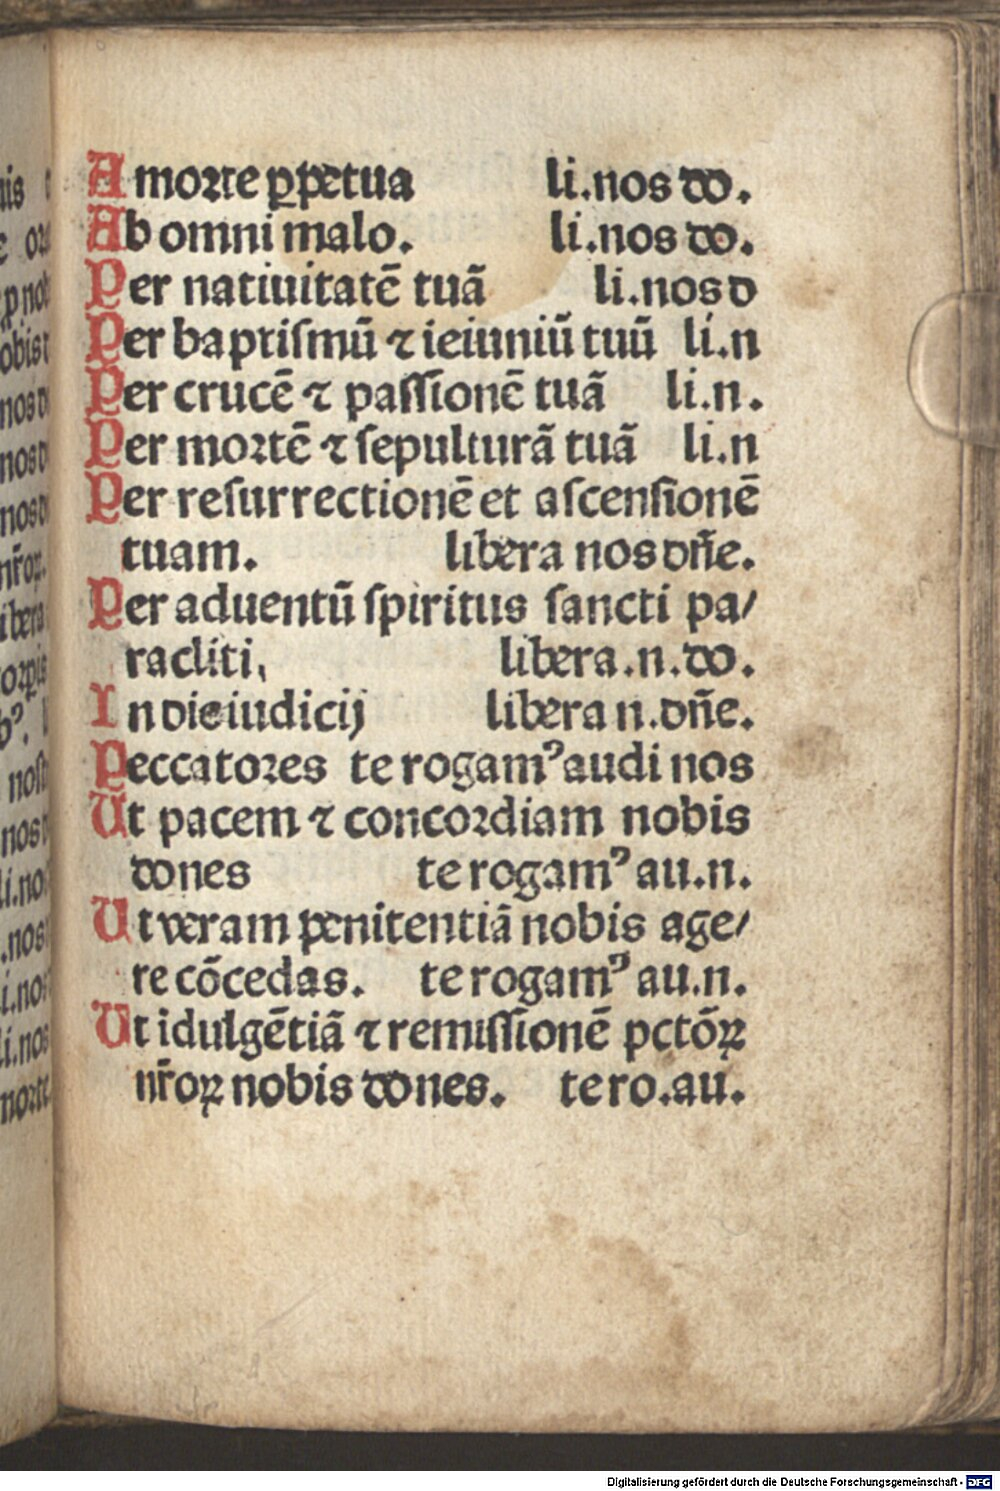 A morte ꝑpetua li.nos do.
Ab omni malo. li.nos do.
Per natiuitatē tuā li.nos d
Per baptiſmū ⁊ ieiuniū tuū li.n
Per crucē ⁊ paſſionē tuā li.n.
Per mortē ⁊ ſepulturā tuā li.n
Per reſurrectionē et aſcenſionē
tuam. libera nos dn̄e.
Per aduentū ſpiritus ſancti pa/
racliti, libera.n.do.
In die iudicij libera n.dn̄e.
Peccatores te rogamꝰ audi nos
Ut pacem ⁊ concordiam nobis
dones te rogamꝰ au.n.
Ut veram penitentiā nobis age/
re cōcedas. te rogamꝰ au.n.
Ut idulgētiā ⁊ remiſſionē pctōꝝ
nr̄oꝝ nobis dones. te ro.au.
Digitalisierung gefördert durch die Deutsche Forschungsgemeinschaft - DFG